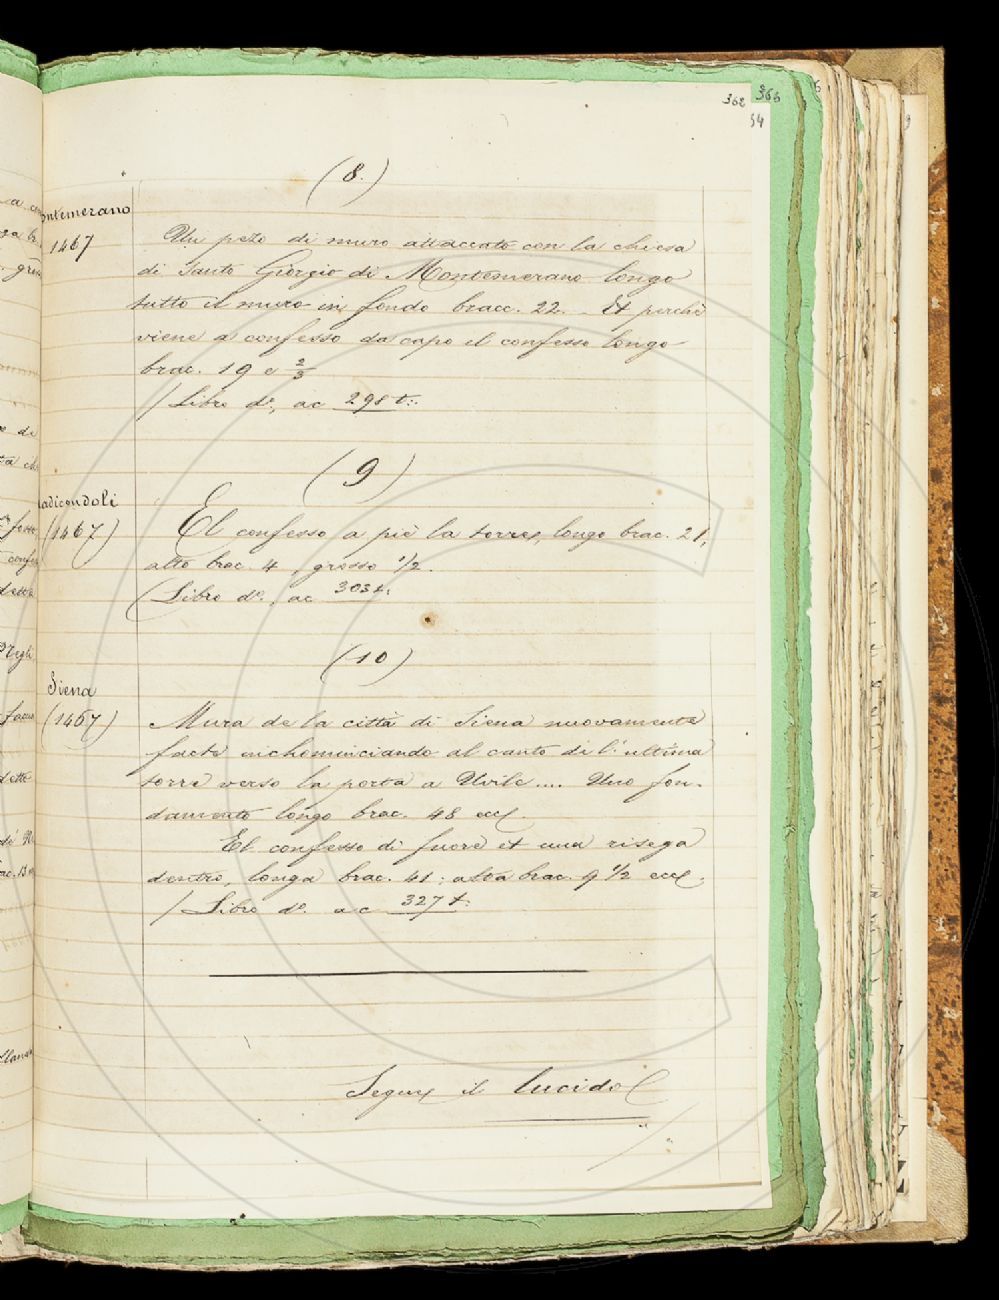 362 366
54
(8.)
ontemerano
1467
Un pezo di muro attaccato con la chiesa
di Santo Giorgio di Montemerano longo
tutto il muro in fondo bracc. 22. Et perchè
viene a confesso da capo el confesso longo
brac. 19 e 2/3
/ Libro d°., ac 298 t:.
(9)
adicondoli
(1467)
El confesso a piè la torre, longo brac. 21,
alto brac. 4, grosso 1/2.
(Libro d°., ac 303 t.
(10)
Siena
(1467)
Mura de la città di Siena nuovamente
facte inchominciando al canto di l' ultima
torre verso la porta a Uvile .... Uno fon-
damento longo brac. 48 ecc.
El confesso di fuore et una risega
dentro, longa brac. 41; alta brac. 9 1/2 ecc.
/ Libro d°. ac 327 t.
Segue il lucido